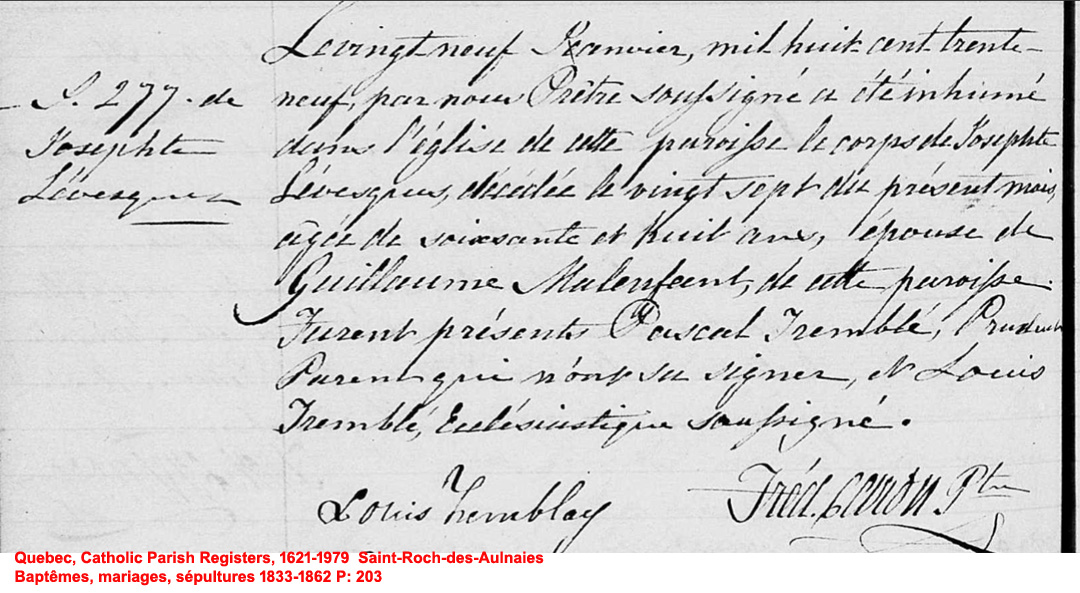 S. 277. de
Josephte
Lévesque
Le vingt neuf Janvier, mil huit cent trente-
neuf, par nous Prêtre soussigné a été inhumé
dans l'église de cette paroisse le corps de Josephte
Lévesque, décédée le vingt sept du présent mois,
agée de soixante et huit ans, épouse de
Guillaume Malenfant, de cette paroisse.
Furent présents Pascal Tremblé, Prudent
Parent qui n'ont su signer, et Louis
Tremblé, Ecclésiastique soussigné.
Louis Tremblay
Fréd. Caron Ptre
Quebec, Catholic Parish Registers, 1621-1979 Saint-Roch-des-Aulnaies
Baptêmes, mariages, sépultures 1833-1862 P: 203